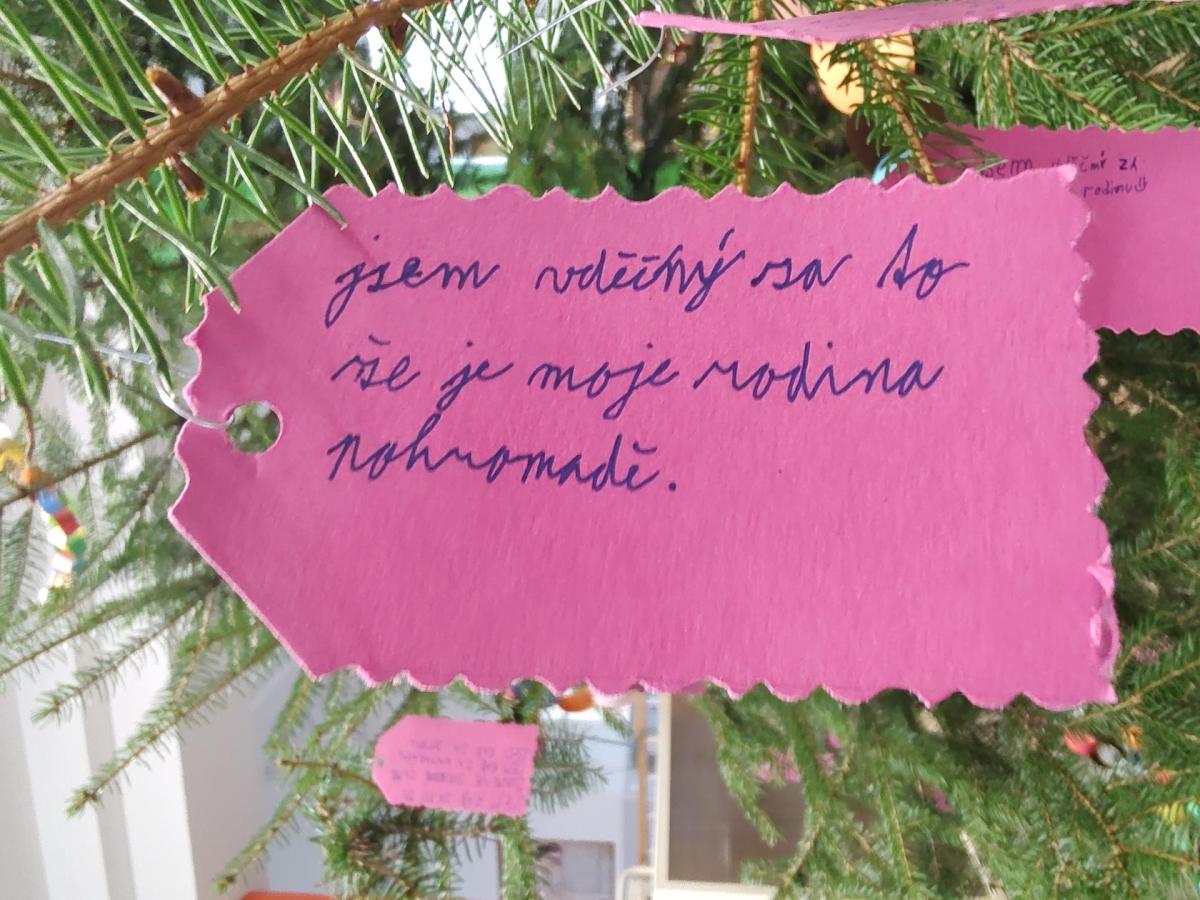 jsem vděčný za to
že je moje rodina
pohromadě.
jsem vděčný za
rodinu